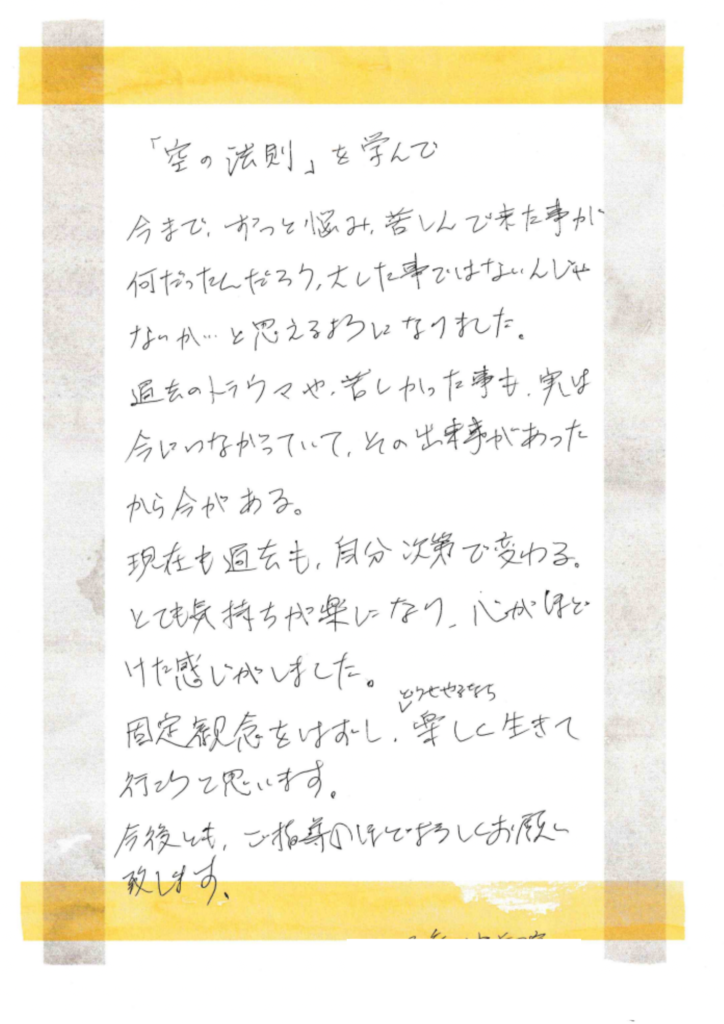 「空の法則」を学んで
今まで、ずっと悩み、苦しんで来た事が
何だったんだろう、大した事ではないんじゃ
ないか…と思えるようになりました。
過去のトラウマや、苦しかった事も、実は
今につながっていて、その出来事があった
から今がある。
現在も過去も、自分次第で変わる。
とても気持ちが楽になり、心がほど
けた感じがしました。
どうせやるなら
固定観念をはずし、楽しく生きて
行こうと思います。
今後とも、ご指導のほどよろしくお願い
致します。